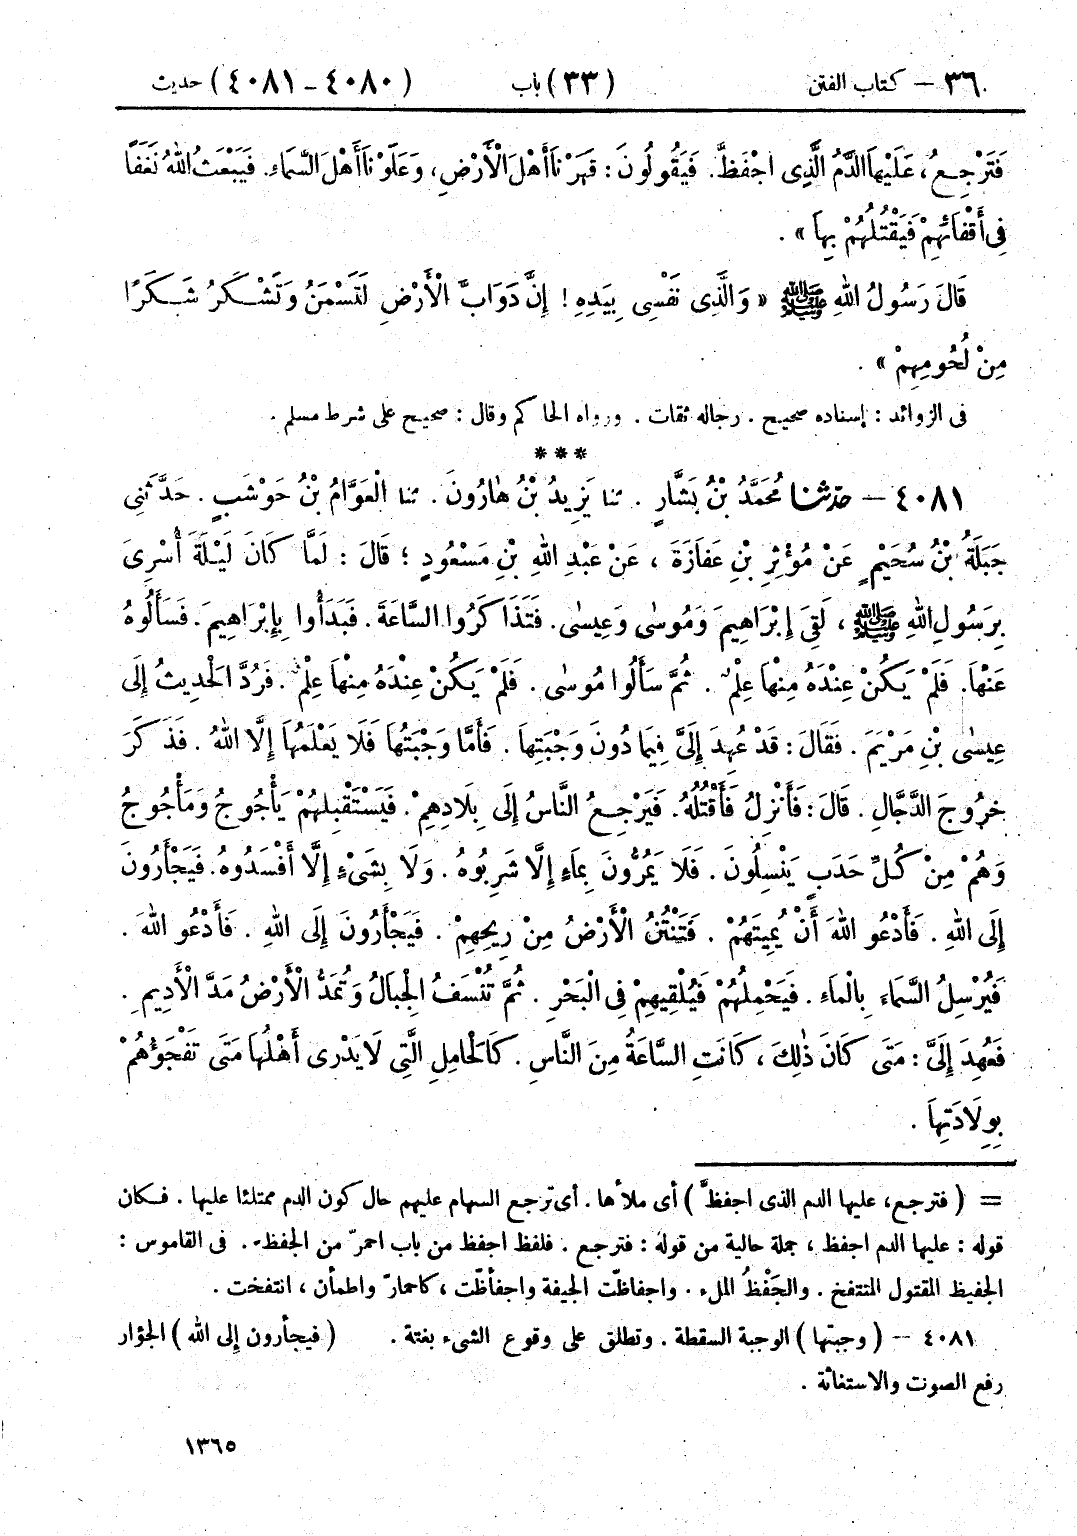 ٣٦ – كتاب الفتن (٣٣) باب (٤٠٨٠ – ٤٠٨١) حديث
فَتَرْجِعُ، عَلَيْهَا الدَّمُ الَّذِى اجْفَظَّ. فَيَقُولُونَ: قَهَرْنَا أَهْلَ الْأَرْضِ، وَعَلَوْنَا أَهْلَ السَّمَاءِ. فَيَبْعَثُ اللهُ نَغَفًا
فِى أَقْفَائِهِمْ فَيَقْتُلُهُمْ بِهَا » .
قَالَ رَسُولُ اللهِ ﷺ « وَالَّذِى نَفْسِى بِيَدِهِ! إِنَّ دَوَابَّ الْأَرْضِ لَتَسْمَنُ وَتَشْكَرُ شَكَرًا
مِنْ لُحُومِهِمْ » .
فى الزوائد : إسناده صحيح . رجاله ثقات . ورواه الحاكم وقال : صحيح على شرط مسلم .
***
٤٠٨١ – حدثنا مُحَمَّدُ بْنُ بَشَّارٍ . ثنا يَزِيدُ بْنُ هَارُونَ . ثنا الْعَوَّامُ بْنُ حَوْشَبٍ . حَدَّثَنِى
جَبَلَةُ بْنُ سُحَيْمٍ عَنْ مُؤْثِرِ بْنِ عَفَازَةَ ، عَنْ عَبْدِ اللهِ بْنِ مَسْعُودٍ ؛ قَالَ : لَمَّا كَانَ لَيْلَةَ أُسْرِىَ
بِرَسُولِ اللهِ ﷺ، لَقِىَ إِبْرَاهِيمَ وَمُوسٰى وَعِيسٰى. فَتَذَاكَرُوا السَّاعَةَ. فَبَدَأُوا بِإِبْرَاهِيمَ. فَسَأَلُوهُ
عَنْهَا. فَلَمْ يَكُنْ عِنْدَهُ مِنْهَا عِلْمٌ . ثُمَّ سَأَلُوا مُوسٰى . فَلَمْ يَكُنْ عِنْدَهُ مِنْهَا عِلْمٌ . فَرُدَّ الْحَدِيثُ إِلَى
عِيسٰى بْنِ مَرْيَمَ . فَقَالَ: قَدْ عُهِدَ إِلَىَّ فِيمَا دُونَ وَجْبَتِهَا . فَأَمَّا وَجْبَتُهَا فَلَا يَعْلَمُهَا إِلَّا اللهُ . فَذَكَرَ
خُرُوجَ الدَّجَّالِ . قَالَ: فَأَنْزِلُ فَأَقْتُلُهُ. فَيَرْجِعُ النَّاسُ إِلَى بِلَادِهِمْ. فَيَسْتَقْبِلُهُمْ يَأْجُوجُ وَمَأْجُوجُ
وَهُمْ مِنْ كُلِّ حَدَبٍ يَنْسِلُونَ . فَلَا يَمُرُّونَ بِمَاءٍ إِلَّا شَرِبُوهُ . وَلَا بِشَىْءٍ إِلَّا أَفْسَدُوهُ. فَيَجْأَرُونَ
إِلَى اللهِ . فَأَدْعُو اللهَ أَنْ يُمِيتَهُمْ . فَتَنْتُنُ الْأَرْضُ مِنْ رِيحِهِمْ . فَيَجْأَرُونَ إِلَى اللهِ . فَأَدْعُو اللهَ .
فَيُرْسِلُ السَّمَاءَ بِالْمَاءِ . فَيَحْمِلُهُمْ فَيُلْقِيهِمْ فِى الْبَحْرِ . ثُمَّ تُنْسَفُ الْجِبَالُ وَتُمَدُّ الْأَرْضُ مَدَّ الْأَدِيمِ .
فَعُهِدَ إِلَىَّ : مَتَى كَانَ ذٰلِكَ ، كَانَتِ السَّاعَةُ مِنَ النَّاسِ . كَالْحَامِلِ الَّتِى لَا يَدْرِى أَهْلُهَا مَتَى تَفْجَؤُهُمْ
بِوِلَادَتِهَا .
= ( فترجع، عليها الدم الذى اجفظَّ ) أى ملأها . أى ترجع السهام عليهم حال كون الدم ممتلئا عليها . فكان
قوله : عليها الدم اجفظ ، جملة حالية من قوله : فترجع . فلفظ اجفظ من باب احمرّ من الجفظ . فى القاموس :
الجفيظ المقتول المنتفخ . والجَفْظُ الملء . واجفاظّت الجيفة واجفأظّت ، كاحمارّ واطمأن ، انتفخت .
٤٠٨١ – ( وجبتها ) الوجبة السقطة . وتطلق على وقوع الشىء بغتة . ( فيجأرون إلى الله ) الجؤار
رفع الصوت والاستغاثة .
١٣٦٥